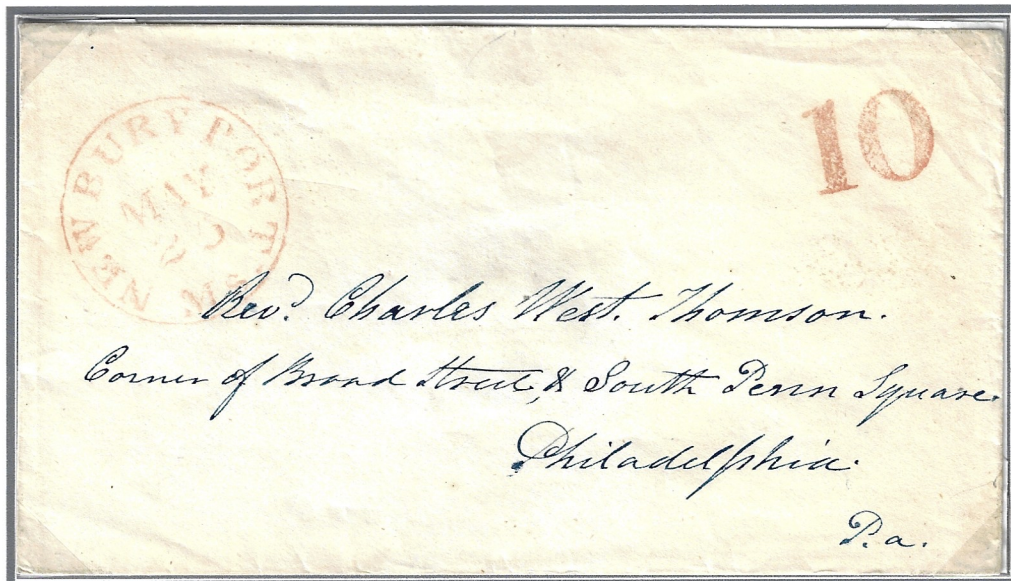 NEWBURYPORT
MAY
10
Rev.d Charles West. Thomson.
Corner of Broad Street, & South Penn Square.
Philadelphia.
P.a.